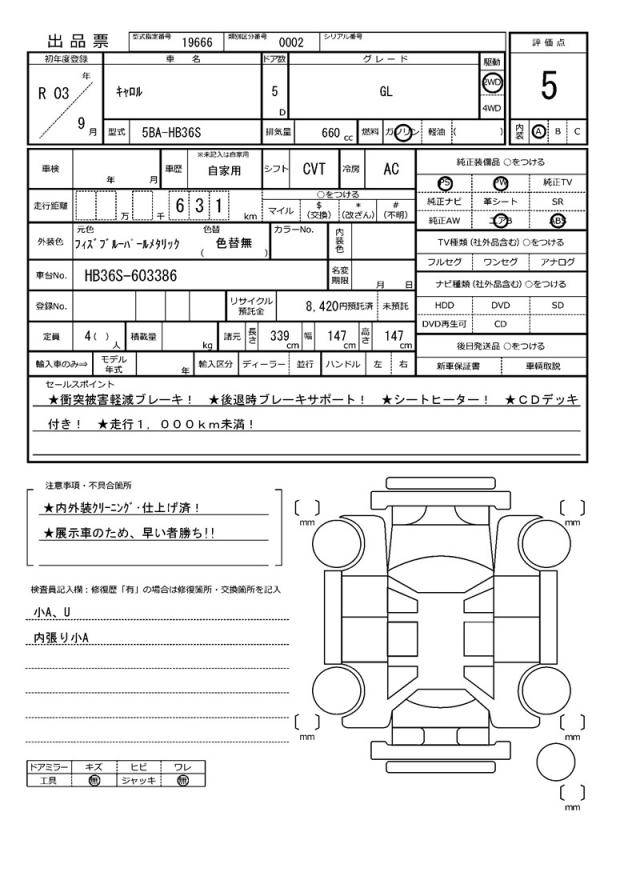 出品票
型式指定番号 19666 類別区分番号 0002 シリアル番号
評価点
5
内装 A B C
初年度登録 車名 ドア数 グレード 駆動
R 03 年 9 月
キャロル 5 D GL 2WD 4WD
型式 5BA-HB36S 排気量 660 cc 燃料 ガソリン 軽油 ( )
車検 年 月 車歴 ※未記入は自家用 自家用 シフト CVT 冷房 AC
走行距離 万 千 6 3 1 km
○をつける
マイル $ (交換) * (改ざん) # (不明)
外装色 元色 フィズブルーパールメタリック 色替 色替無 ( ) カラーNo. 内装色
車台No. HB36S-603386 名変期限 月 日
登録No. リサイクル預託金 8,420円預託済 未預託
定員 4( ) 人 積載量 kg 諸元 長さ 339 cm 幅 147 cm 高さ 147 cm
輸入車のみ⇒ モデル年式 年 輸入区分 ディーラー 並行 ハンドル 左 右
純正装備品 ○をつける
PS PW 純正TV
純正ナビ 革シート SR
純正AW エアB ABS
TV種類(社外品含む)○をつける
フルセグ ワンセグ アナログ
ナビ種類(社外品含む)○をつける
HDD DVD SD
DVD再生可 CD
後日発送品 ○をつける
新車保証書 車輌取説
セールスポイント
★衝突被害軽減ブレーキ! ★後退時ブレーキサポート! ★シートヒーター! ★CDデッキ
付き! ★走行1,000km未満!
注意事項・不具合箇所
★内外装クリーニング・仕上げ済!
★展示車のため、早い者勝ち!!
検査員記入欄:修復歴「有」の場合は修復箇所・交換箇所を記入
小A、U
内張り小A
ドアミラー キズ ヒビ ワレ
工具 無 ジャッキ 無
[ ] mm
[ ] mm
[ ] mm
[ ] mm
[ ] mm